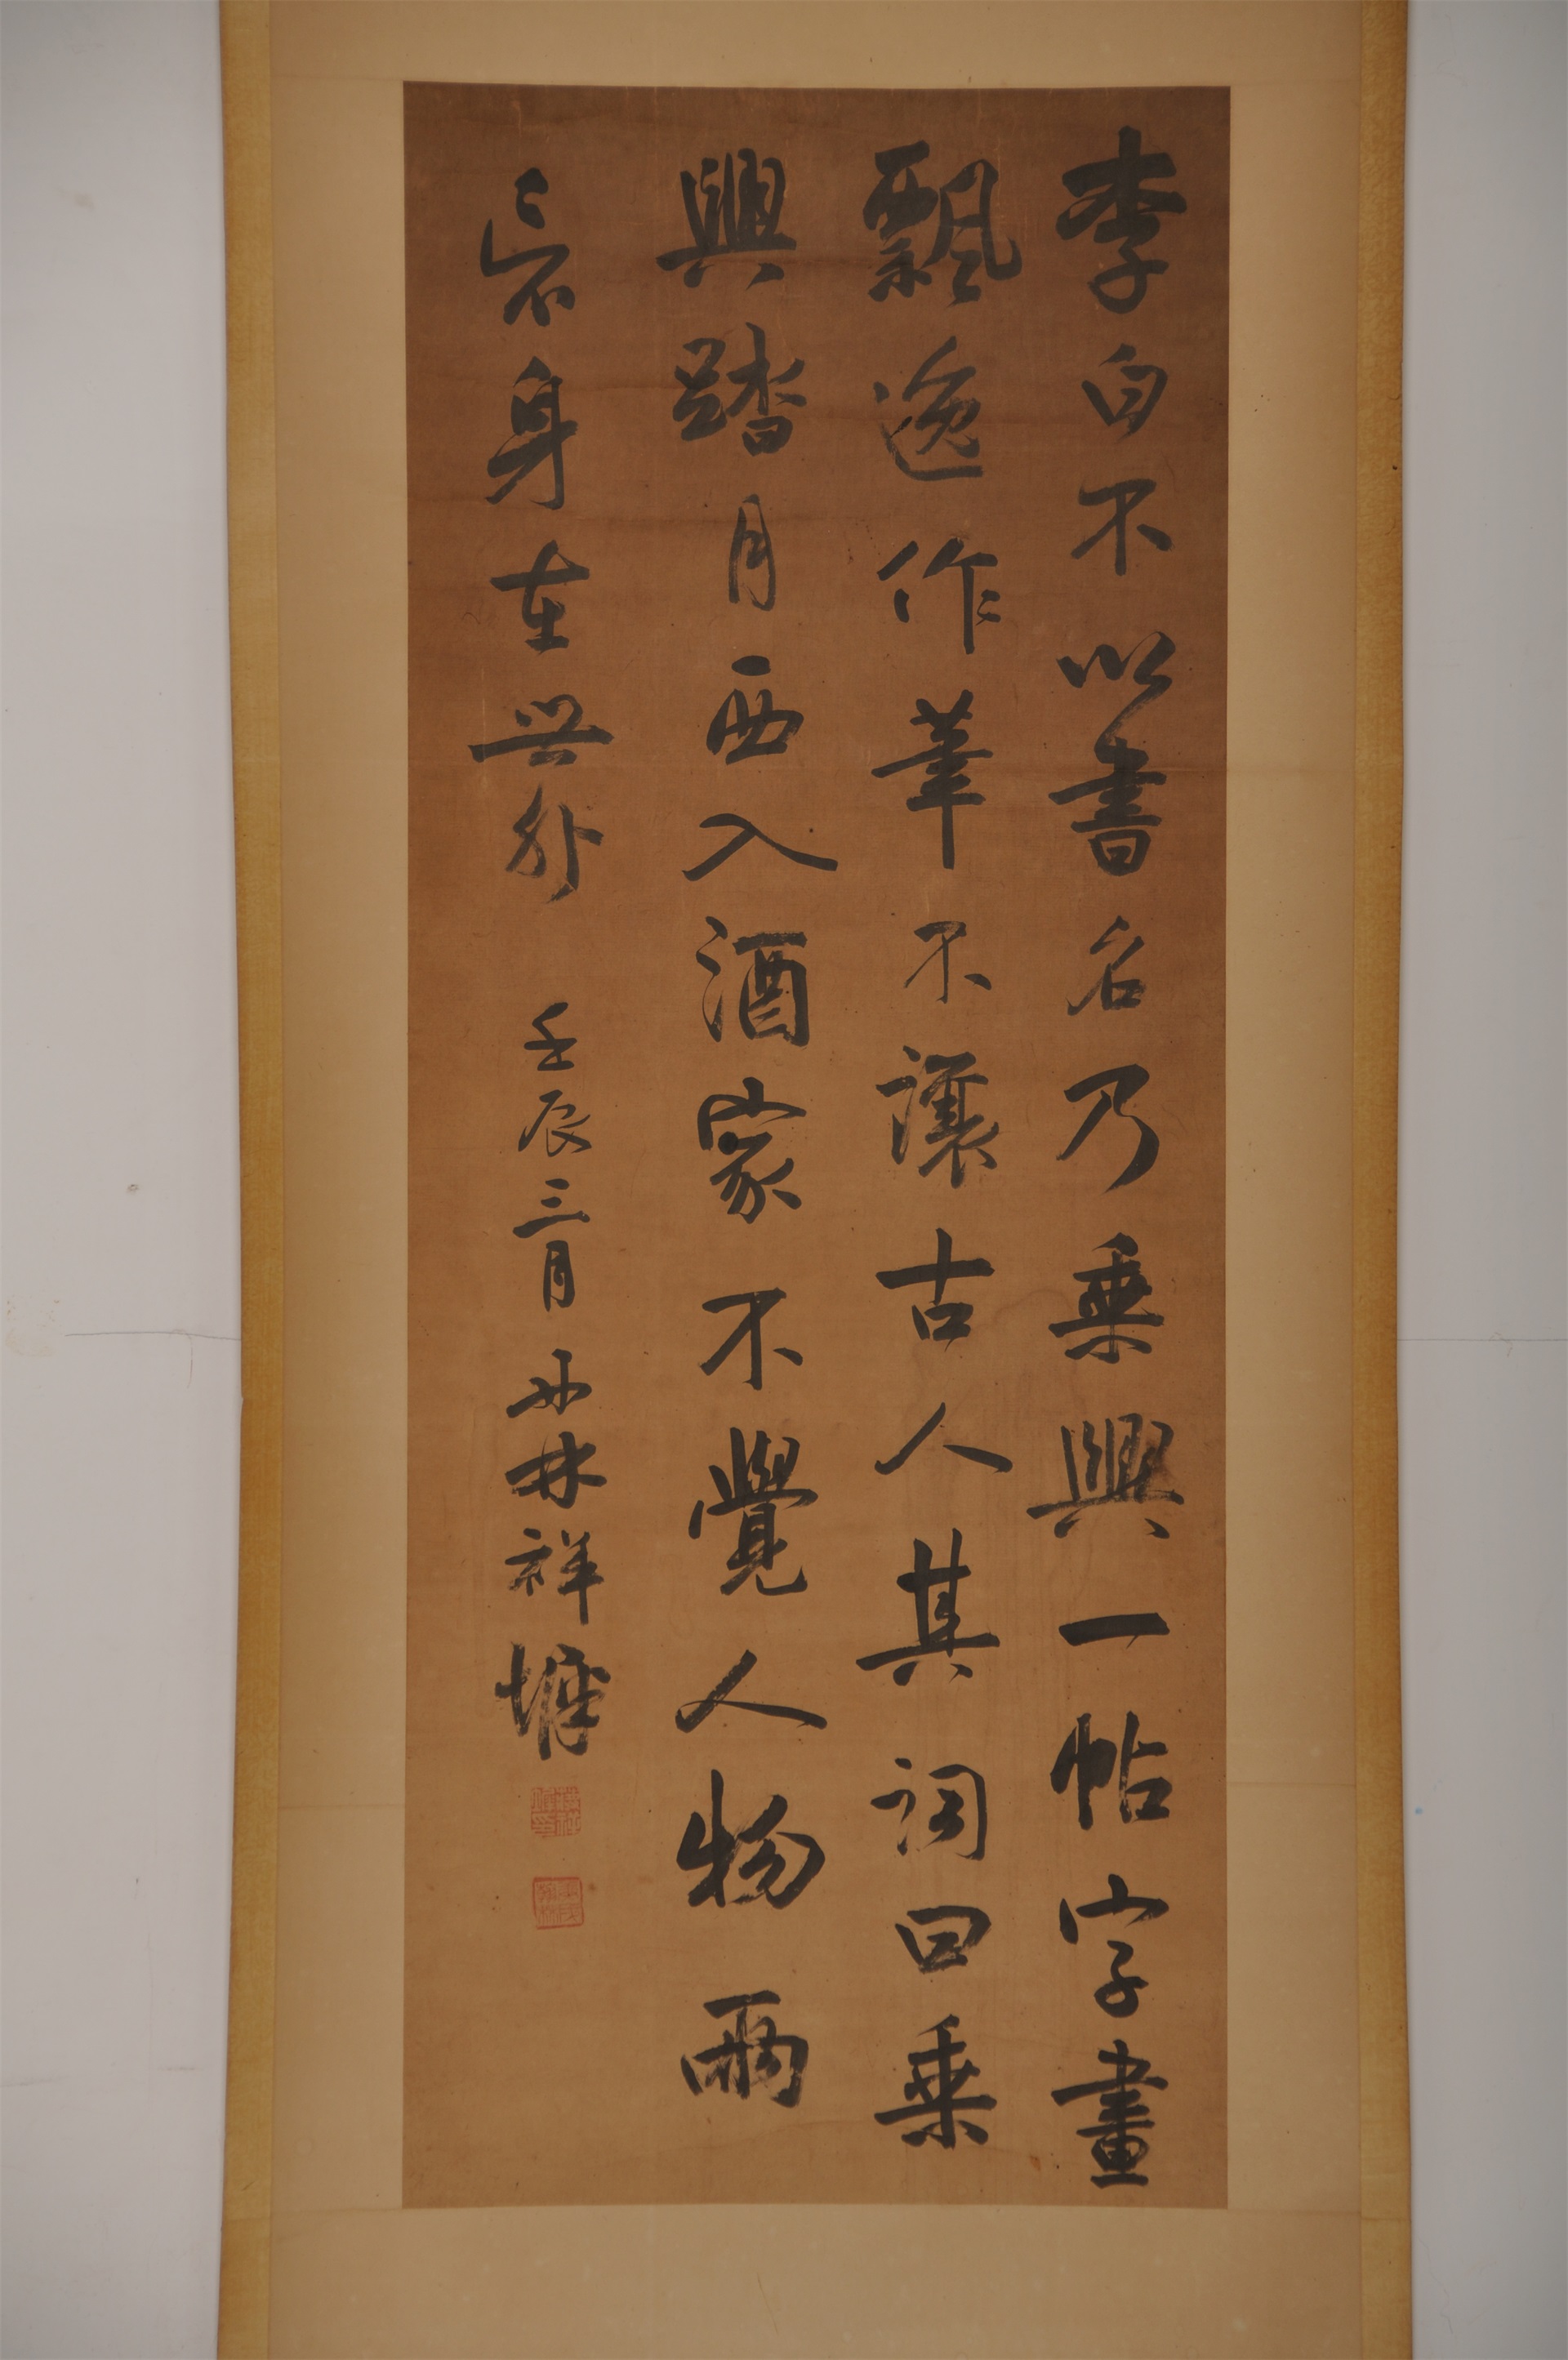 李白不以書名乃乘興一帖字畫
飄逸作筆不讓古人其詞曰乘
興踏月西入酒家不覺人物兩
忘身在世外 壬辰三月 丹林祥墀
蔣祥墀印